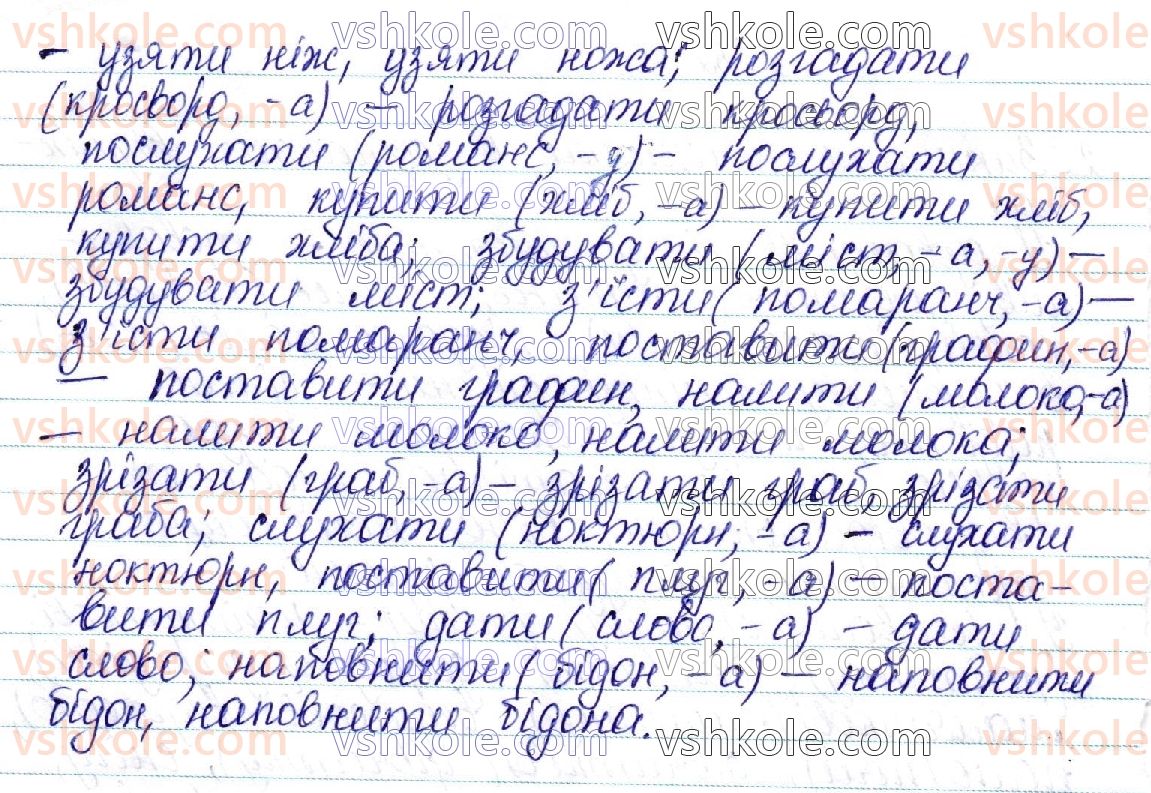 - узяти ніж, узяти ножа; розгадати
(кросворд, -а) — розгадати кросворд,
послухати (романс, -у) - послухати
романс, купити (хліб, -а) - купити хліб,
купити хліба; збудувати (міст, -а, -у) —
збудувати міст; з'їсти (помаранч, -а) —
з'їсти помаранч, поставити (графин, -а)
— поставити графин, налити (молоко, -а)
— налити молоко, налити молока;
зрізати (граб, -а) — зрізати граб, зрізати
граба; слухати (ноктюрн, -а) - слухати
ноктюрн, поставити (плуг, -а) — поста-
вити плуг; дати (слово, -а) - дати
слово; наповнити (бідон, -а) — наповнити
бідон, наповнити бідона.
vshkole.com